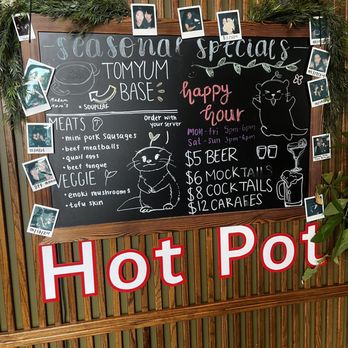 seasonal specials
TOMYUM
BASE
= SOUPLEAF
Order with
your server
MEATS
• mini pork sausages
• beef meatballs
• quail eggs
• beef tongue
VEGGIE
• enoki mushrooms
• tofu skin
happy
hour
Mon-Fri 3pm-6pm
Sat-Sun 3pm-6pm
$5 BEER
$6 MOCKTAILS
$8 COCKTAILS
$12 CARAFES
Hot Pot